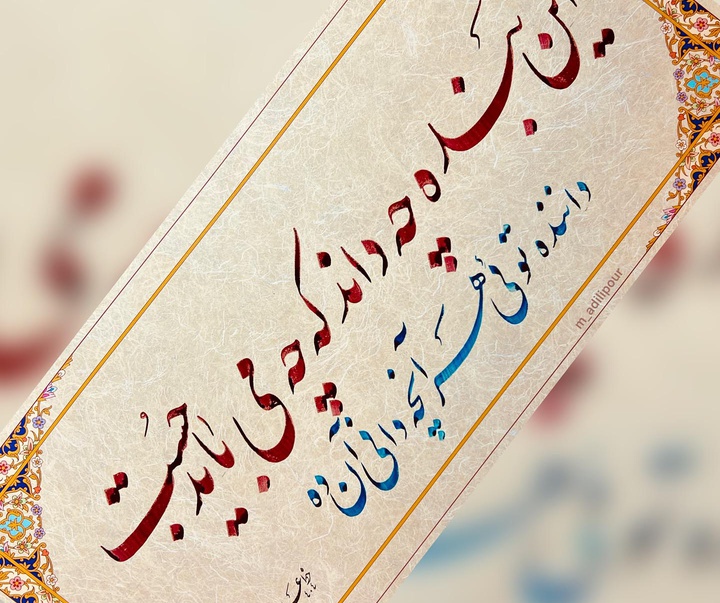 این بنده چه داند که چه می باید جست
داننده تویی هر آنچه دانی آن ده
m_adilipour